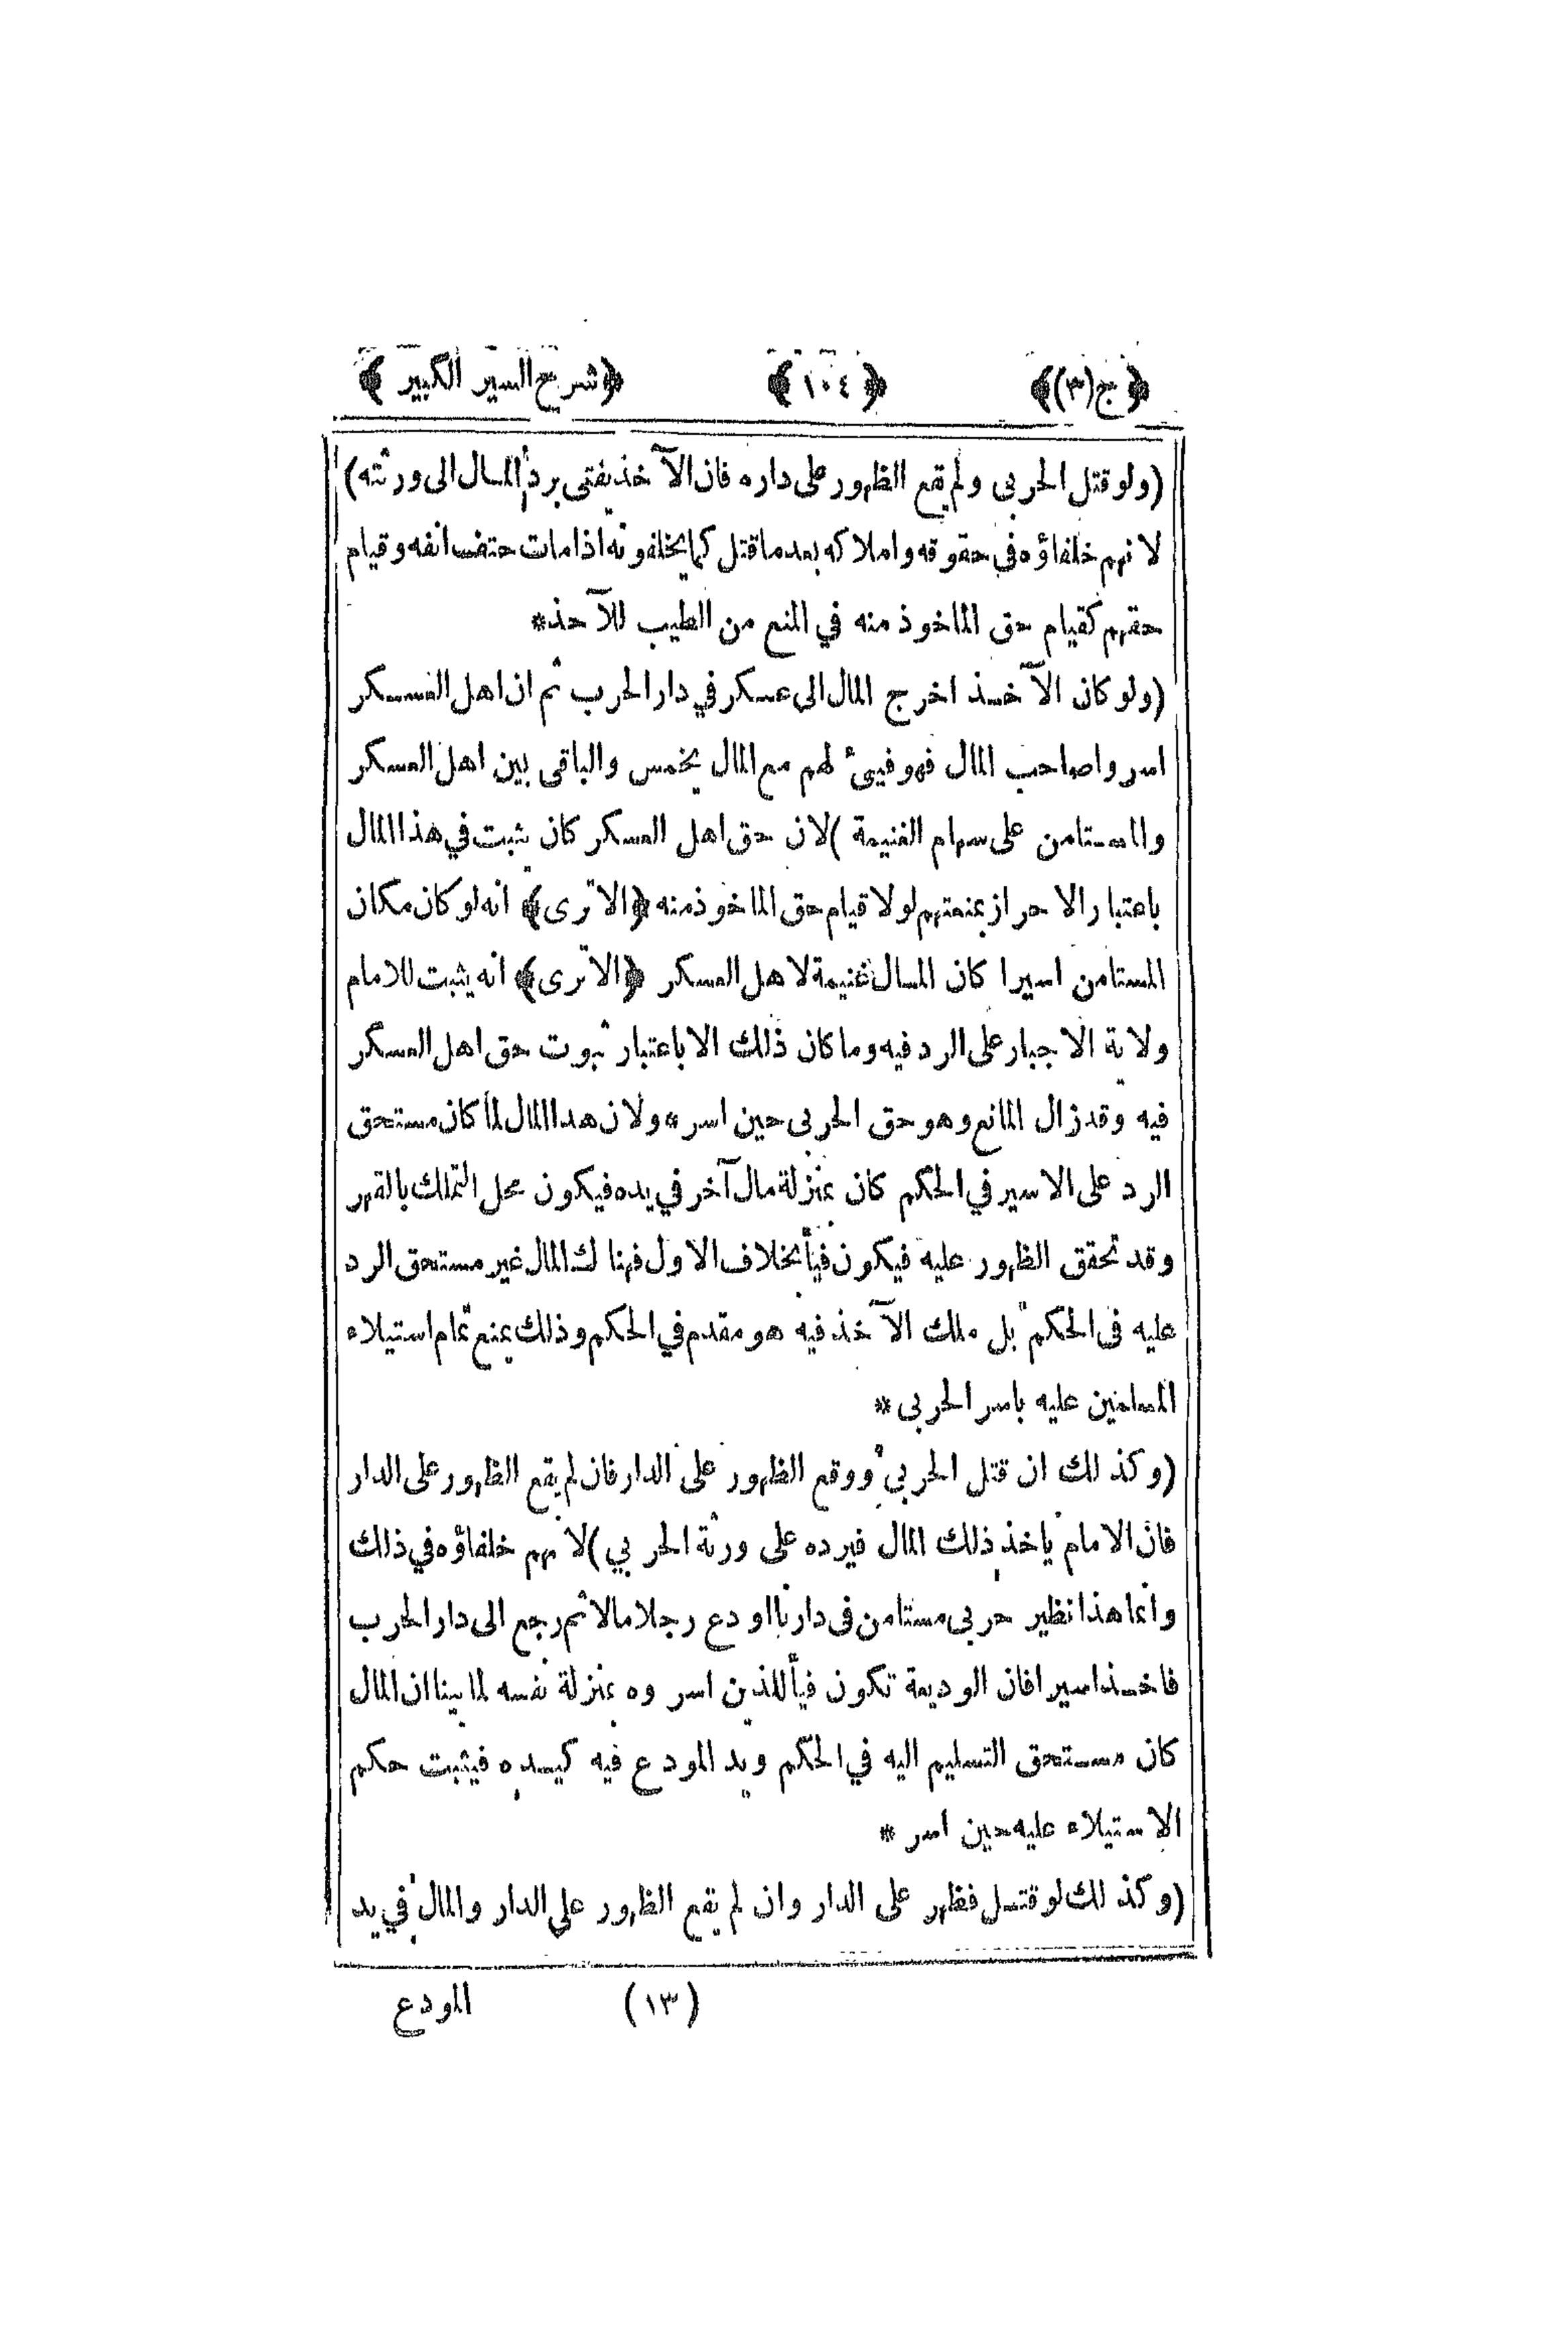 ﴿ج(٣)﴾ ﴿١٠٤﴾ ﴿شرح السير الكبير﴾
(ولو قتل الحربى ولم يقع الظهور على داره فان الآخذ يفتى برد المال الى ورثته)
لانهم خلفاؤه في حقوقه واملاكه بعد ما قتل كما يخلفونه اذا مات حتف انفه وقيام
حقهم كقيام حق الماخوذ منه في المنع من الطيب للآخذ*
(ولو كان الآخذ اخرج المال الى عسكر في دار الحرب ثم ان اهل العسكر
اسروا صاحب المال فهو فيئ لهم مع المال يخمس والباقى بين اهل العسكر
والمستامن على سهام الغنيمة) لان حق اهل العسكر كان ثبت في هذا المال
باعتبار الاحراز بمنعتهم لولا قيام حق الماخوذ منه ﴿الا ترى﴾ انه لو كان مكان
المستامن اسيرا كان المال غنيمة لاهل العسكر ﴿الا ترى﴾ انه يثبت للامام
ولاية الاجبار على الرد فيه وما كان ذلك الا باعتبار ثبوت حق اهل العسكر
فيه وقد زال المانع وهو حق الحربى حين اسر* ولان هذا المال لما كان مستحق
الرد على الاسير في الحكم كان بمنزلة مال آخر في يده فيكون محل التملك بالقهر
وقد تحقق الظهور عليه فيكون فيأ بخلاف الاول فهناك المال غير مستحق الرد
عليه فى الحكم بل ملك الآخذ فيه هو مقدم في الحكم وذلك يمنع تمام استيلاء
المسلمين عليه باسر الحربى*
(وكذلك ان قتل الحربي ووقع الظهور على الدار فان لم يقع الظهور على الدار
فان الامام ياخذ ذلك المال فيرده على ورثة الحربي) لانهم خلفاؤه في ذلك
وانما هذا نظير حربى مستامن فى دارنا اودع رجلا مالا ثم رجع الى دار الحرب
فاخذ اسيرا فان الوديعة تكون فيأ للذين اسروه بمنزلة نفسه لما بينا ان المال
كان مستحق التسليم اليه في الحكم ويد المودع فيه كيده فيثبت حكم
الاستيلاء عليه حين اسر*
(وكذلك لو قتل فظهر على الدار وان لم يقع الظهور على الدار والمال في يد
(١٣) المودع